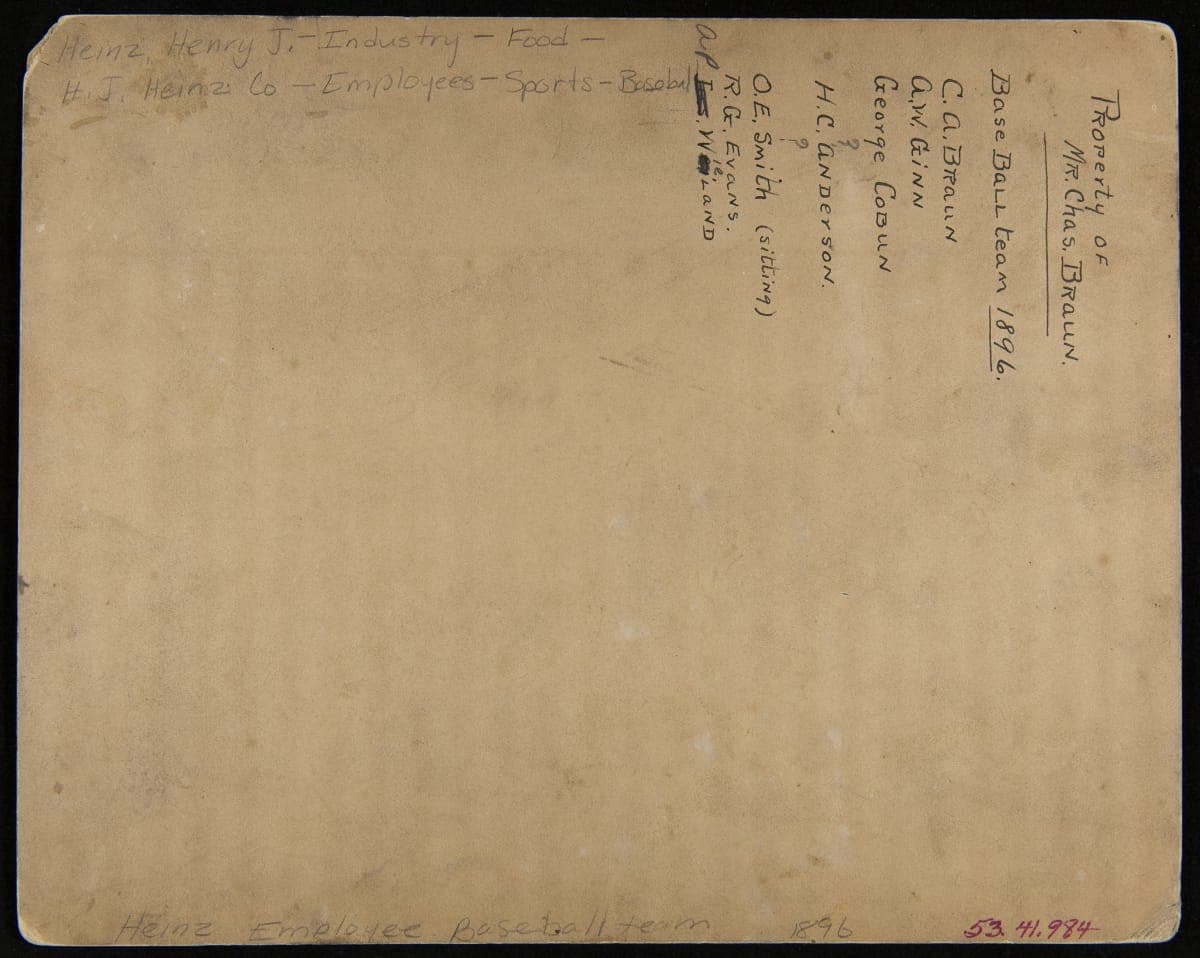 Heinz, Henry J. - Industry - Food -
H. J. Heinz Co - Employees - Sports - Baseball
Property of
Mr. Chas. Braun.
Base Ball team 1896.
C. A. Braun
A. W. Ginn
George Cobun
?
H. C. Anderson.
?
O. E. Smith (sitting)
R. G. Evans.
A P Wieland
Heinz Employee Baseball team 1896
53.41.984